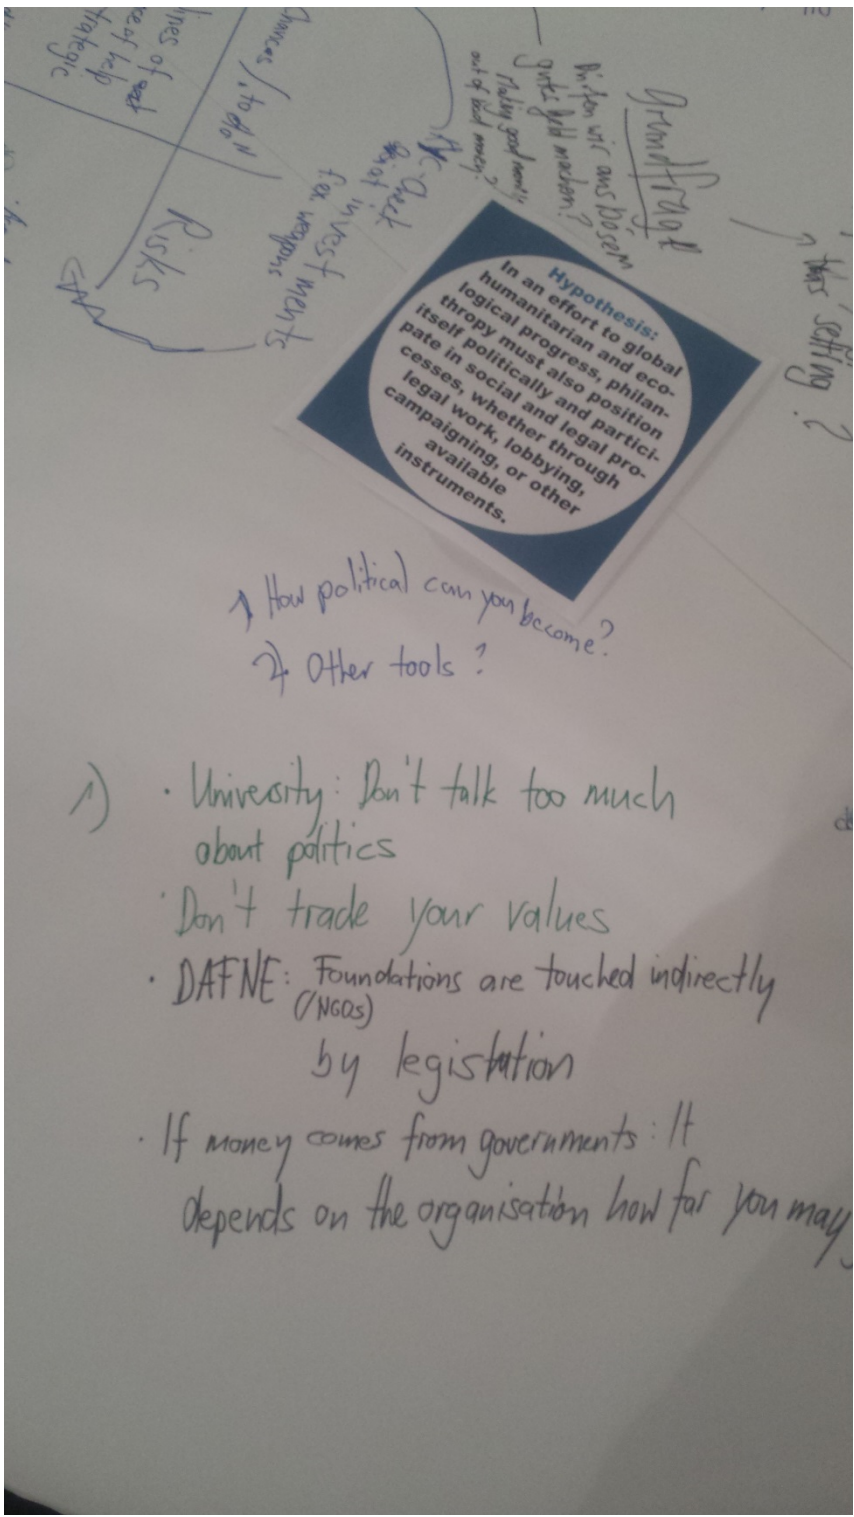 Grundfrage
Dürfen wir aus Bösem
gutes Geld machen?
Making good money
out of bad money?
this setting?
Chances / "to do's"
lines of
of help
strategic
Risks
Check
not investments
f.ex. weapons
Hypothesis:
In an effort to global
humanitarian and eco-
logical progress, philan-
thropy must also position
itself politically and partici-
pate in social and legal pro-
cesses, whether through
legal work, lobbying,
campaigning, or other
available
instruments.
1) How political can you become?
2) Other tools?
1) · University: Don't talk too much
about politics
· Don't trade your values
· DAFNE: Foundations are touched indirectly
(/NGOs)
by legislation
· If money comes from governments: It
depends on the organisation how far you may